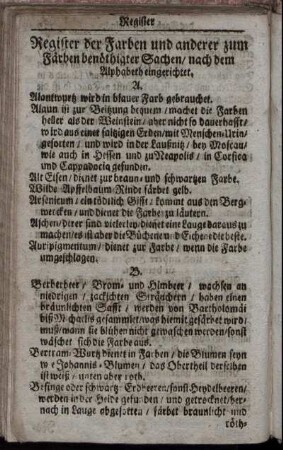 Register
Register der Farben und anderer zum
Färben benöthigter Sachen / nach dem
Alphabeth eingerichtet.
A.
Alantwurtz wird in blauer Farb gebrauchet.
Alaun ist zur Beitzung bequem / machet die Farben
heller als der Weinstein / aber nicht so dauerhafft /
wird aus einer saltzigen Erden / mit Menschen-Urin
gesotten / und wird in der Laußnitz / bey Moscau /
wie auch in Hessen und zu Neapolis / in Corsica
und Cappadocia gefunden.
Alt Eisen / dienet zur braun- und schwartzen Farbe.
Wilde Apffelbaum-Rinde färbet gelb.
Arsenicum / ein tödtlich Gifft / kommt aus den Berg-
wercken / und dienet die Farbe zu läutern.
Aschen / derer sind vielerley / dienet eine Lauge daraus zu
machen / es ist aber die Büchene u. Eichene die beste.
Auripigmentum / dienet zur Farbe / wenn die Farbe
umgeschlagen.
B.
Berberbeer / Brom- und Himbeer / wachsen an
niedrigen / zackichten Sträuchern / haben einen
bräunlichten Safft / werden von Bartholomäi
biß Michaelis gesammlet / was hiermit gefärbet wird /
muß / wann sie blühen nicht gewaschen werden / sonst
wäschet sich die Farbe aus.
Bertram-Wurtz dienet in Farben / die Blumen seyn
wie Johannis-Blumen / das Obertheil derselben
ist weiß / unten aber roth.
Besinge oder schwartze Erdbeeren / sonst Heydelbeeren /
werden in der Heide gefunden / und getrocknet / her-
nach in Lauge abgesotten / färbet braunlicht und
röth-